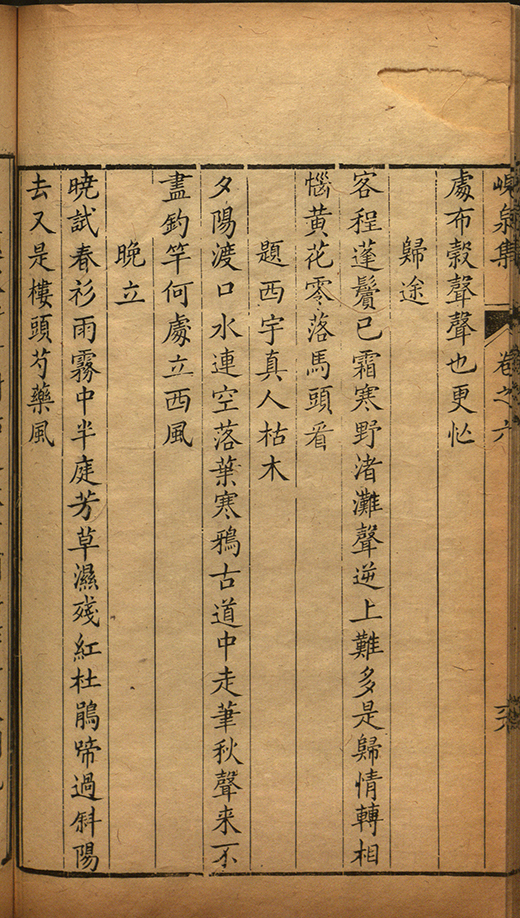 峴泉集 卷之六
處布穀聲聲也更忙
歸途
客程蓬鬢已霜寒野渚灘聲逆上難多是歸情轉相
惱黄花零落馬頭看
題西宇真人枯木
夕陽渡口水連空落葉寒鴉古道中走筆秋聲来不
盡釣竿何處立西風
晚立
晓試春衫雨霧中半庭芳草濕殘紅杜鵑啼過斜陽
去又是樓頭芍藥風